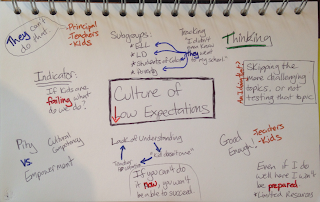 They can't
do that
-Principal
Teachers
-Kids
Subgroups
*ELL
*LD
*Students of Color
*Poverty
Tracking
"I didn't
even know
they went
to my school"
Thinking
Indicator:
If kids are
failing what
do we do?
Culture of
Low Expectations
Skipping the
more challenging
topics, or not
testing that topic
Pity
vs.
Empowerment
Cultural
Competency
Lack of Understanding
If you can't do
it now, you won't
be able to succeed
Good
Enough
Teachers
-Kids
Even if I do
well here I won't
be prepared
*Limited Resources